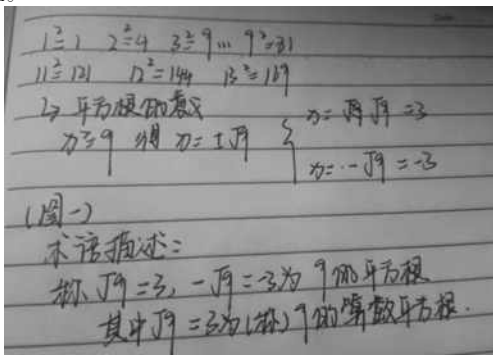 1²=1 2²=4 3²=9 … 9²=81
11²=121 12²=144 13²=169
2> 平方根的意义
x²=9 则 x=±√9 { x=√9 √9=3
x=-√9=-3
(图一)
术语描述:
称 √9=3, -√9=-3为 9的平方根
其中√9=3为(称) 9的算数平方根.